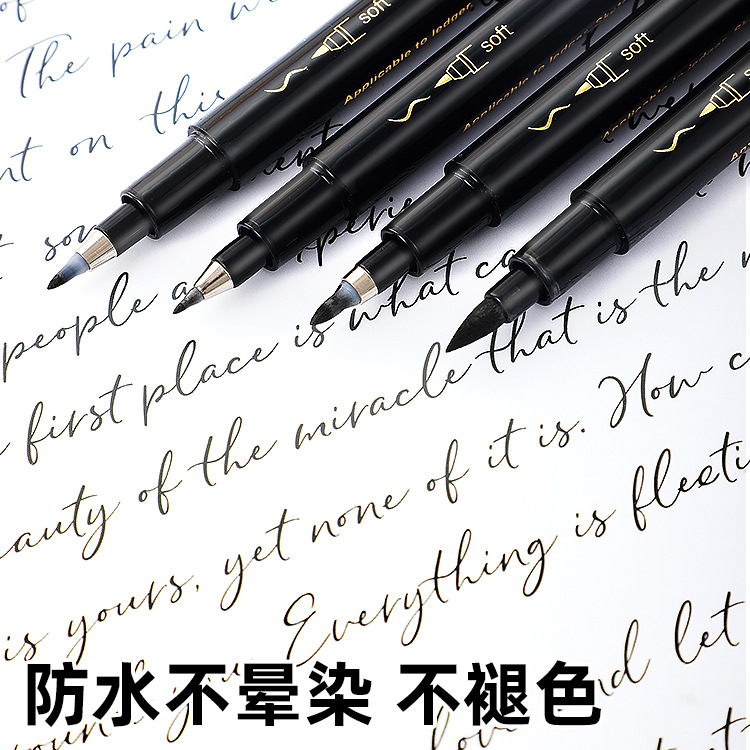 The pain
soft
soft
soft
Applicable to ledger,
Applicable to ledger
nt on this
people
first place is what ca
auty of the miracle that is the
is yours, yet none of it is. How c
Everything is fleeti
love and let
防水不晕染 不褪色